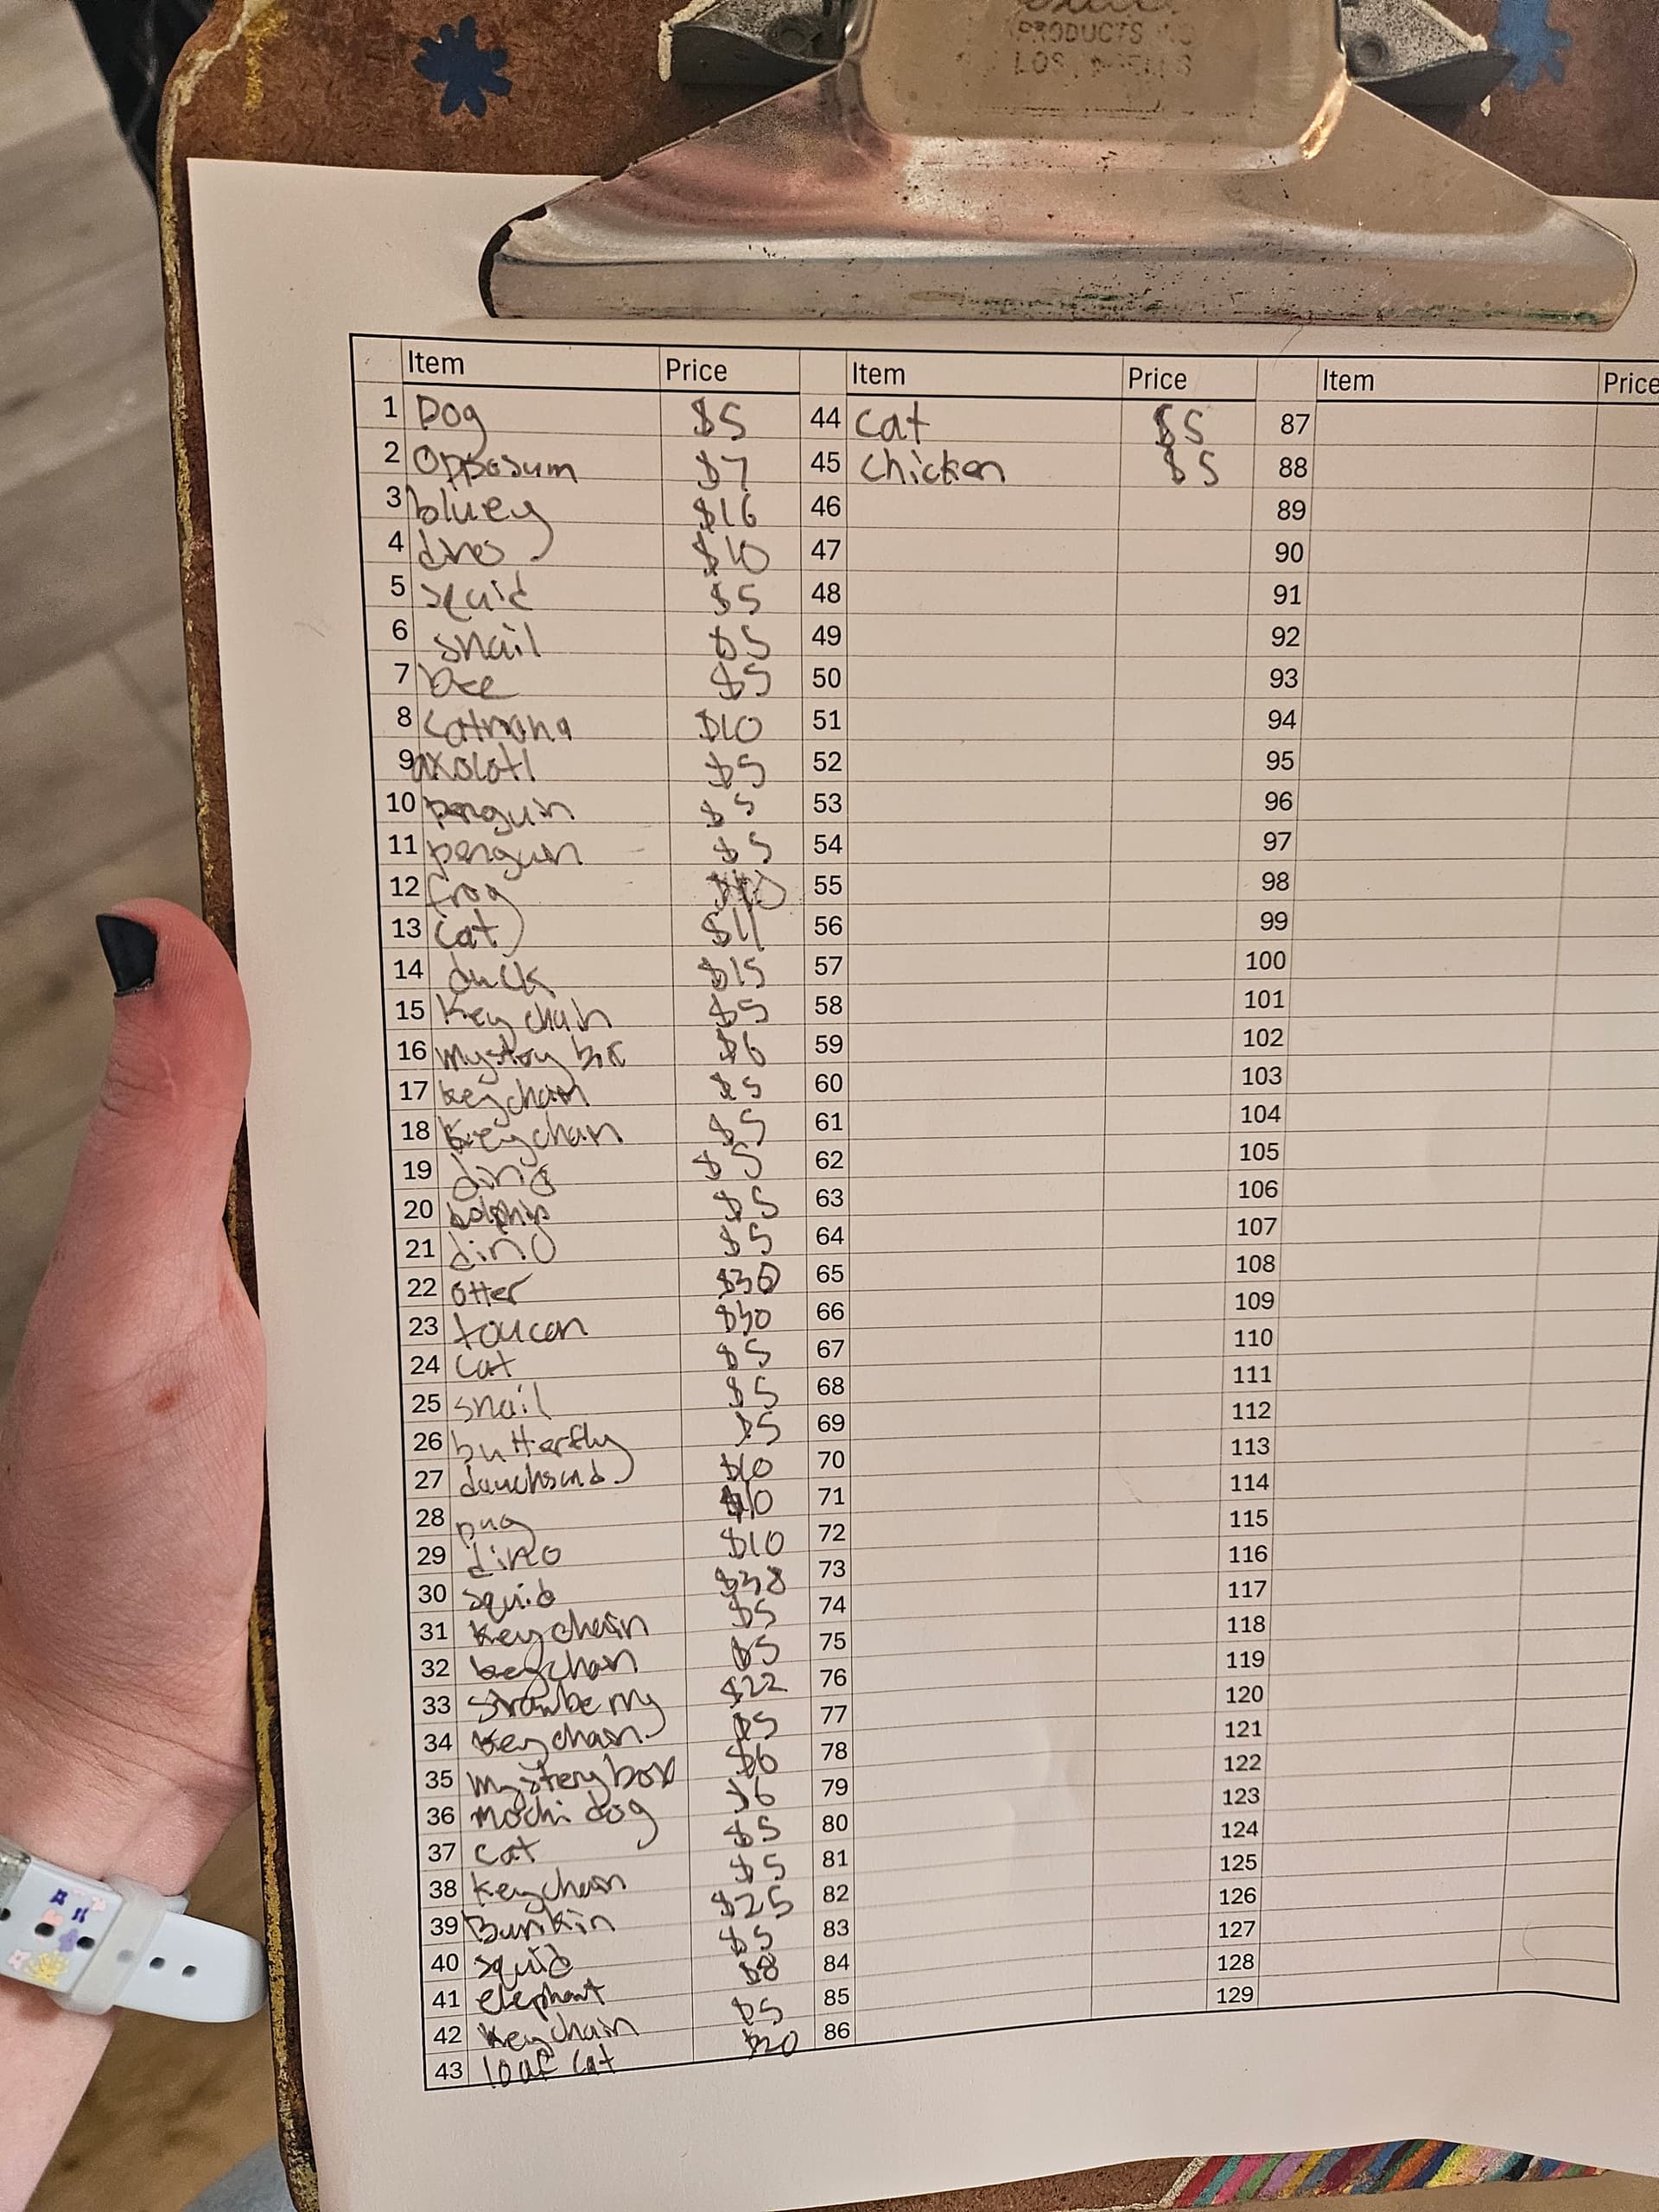 PRODUCTS
LOS
Item Price Item Price Item Price
1 Dog $5 44 cat $5 87
2 Opposum $7 45 chicken $5 88
3 bluey $16 46 89
4 dino $10 47 90
5 squid $5 48 91
6 snail $5 49 92
7 bee $5 50 93
8 $10 51 94
9 axolotl $5 52 95
10 penguin $5 53 96
11 penguin $5 54 97
12 frog 55 98
13 cat $11 56 99
14 duck $15 57 100
15 Key chain $5 58 101
16 box $6 59 102
17 keychain $5 60 103
18 Keychan $5 61 104
19 dino $5 62 105
20 $5 63 106
21 dino $5 64 107
22 otter $30 65 108
23 toucan $30 66 109
24 cat $5 67 110
25 snail $5 68 111
26 butterfly $5 69 112
27 $10 70 113
28 pug $10 71 114
29 dino $10 72 115
30 squid $38 73 116
31 keychain $5 74 117
32 keychan $5 75 118
33 strawberry $22 76 119
34 keychain $5 77 120
35 mysterybox $6 78 121
36 mochi dog $6 79 122
37 cat $5 80 123
38 keychain $5 81 124
39 $25 82 125
40 squid $5 83 126
41 elephant $8 84 127
42 keychain $5 85 128
43 loaf cat $20 86 129